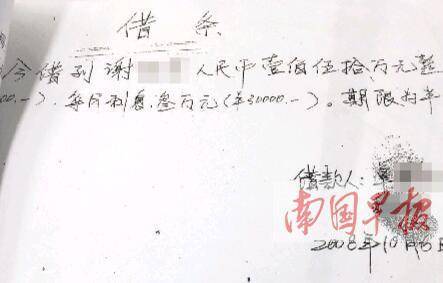 借条
今借到谢 人民币壹佰伍拾万元整
00.—)。每月利息叁万元(¥30000.—)。期限为半
借款人:覃
南国早报
2008年10月5日